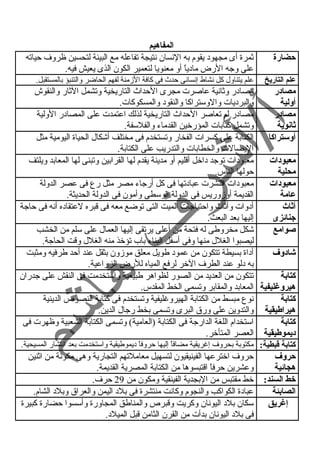 المفاهيم
حضارة
ثمرة أى مجهود يقوم به الإنسان نتيجة تفاعله مع البيئة لتحسين ظروف حياته
على وجه الأرض مادياً أو معنوياً لتعمير الكون الذى يعيش فيه.
علم التاريخ
علم يتناول كل نشاط إنسانى حدث فى كافة الأزمنة لفهم الحاضر والتنبؤ بالمستقبل.
مصادر أولية
مصادر وثائية عاصرت مجرى الأحداث التاريخية وتشمل الآثار والنقوش
والبرديات والاوستراكا والنقود والمسكوكات.
مصادر ثانوية
مصادر لم تعاصر الأحداث التاريخية لذلك اعتمدت على المصادر الأولية
وتشمل كتابات المؤرخين القدماء والفلاسفة.
أوستراكا
الكتابة على كسرات الفخار وتستخدم فى مختلف أشكال الحياة اليومية مثل
الإيصالات والخطابات والتدريب على الكتابة.
معبودات محلية
معبودات توجد داخل أقليم أو مدينة يقدم لها القرابين وتبنى لها المعابد ويلتف
حولها الناس.
معبودات عامة
معبودات انتشرت عبادتها فى كل أرجاء مصر مثل رع فى عصر الدولة
القديمة أوزوريس فى الدولة الوسطى وآمون فى الدولة الحديثة.
أثاث جنائزى
أدوات وأثاث واحتياجات الميت التى توضع معه فى قبره لاعتقاده أنه فى حاجة
إليها بعد البعث.
صوامع
شكل مخروطى له فتحة من أعلى يرتقى إليها العمال على سلم من الخشب
ليصبوا الغلال منها وفى أسفل البناء باب تؤخذ منه الغلال وقت الحاجة.
شادوف
أداة بسيطة تتكون من عمود طويل معلق موزون بثقل عند أحد طرفيه ومثبت
به دلو عند الطرف الآخر لرفع المياه للأرض الزراعية.
كتابة هيروغليفية
تتكون من العديد من الصور لظواهر طبيعية استخدمت فى النقش على جدران
المعابد والمقابر وتسمى الخط المقدس.
كتابة هيراطيقية
نوع مبسط من الكتابة الهيروغليفية وتستخدم فى كتابة النصوص الدينية
والتدوين على ورق البرى وتسمى بخط رجال الدين.
كتابة ديموطيقية
استخدام اللغة الدارجة فى الكتابة (العامية) وتسمى الكتابة الشعبية وظهرت فى
العصر المتأخر.
كتابة قبطية:
مكتوبة بحروف إغريقية مضافاً إليها حروفاً ديموطيقية واستخدمت بعد انتشار المسيحية.
حروف هجائية
حروف اخترعها الفينيقيون لتسهيل معاملاتهم التجارية وهى مكونة من اثنين
وعشرين حرفاً اقتبسوها من الكتابة المصرية القديمة.
خط المسند:
خط مقتبس من الإبجدية الفينقية ومكون من 29 حرف.
الصابئة
عبادة الكواكب والنجوم وكانت منتشرة فى بلاد اليمن والعراق وبلاد الشام.
إغريق
سكان بلاد اليونان وكريت وقبرص والمناطق المجاورة وأسسوا حضارة كبيرة
فى بلاد اليونان بدأت من القرن الثامن قبل الميلاد.